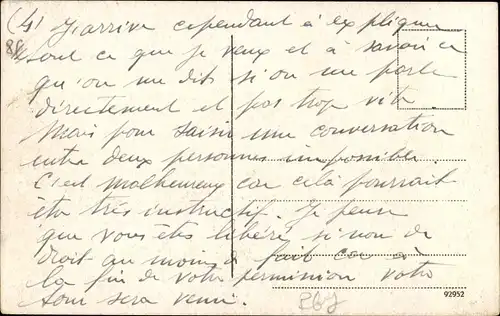 (4) J'arrive cependant à expliquer
88
tout ce que je veux et à savoir ce
qu'on me dit si on me parle
directement et pas trop vite.
Mais pour saisir une conversation
entre deux personnes impossible.
C'est malheureux car celà pourrait
être très instructif. Je pense
que vous êtes libéré si non de
droit au moins de fait car à
la fin de votre permission votre
tour sera venu.
267
92952